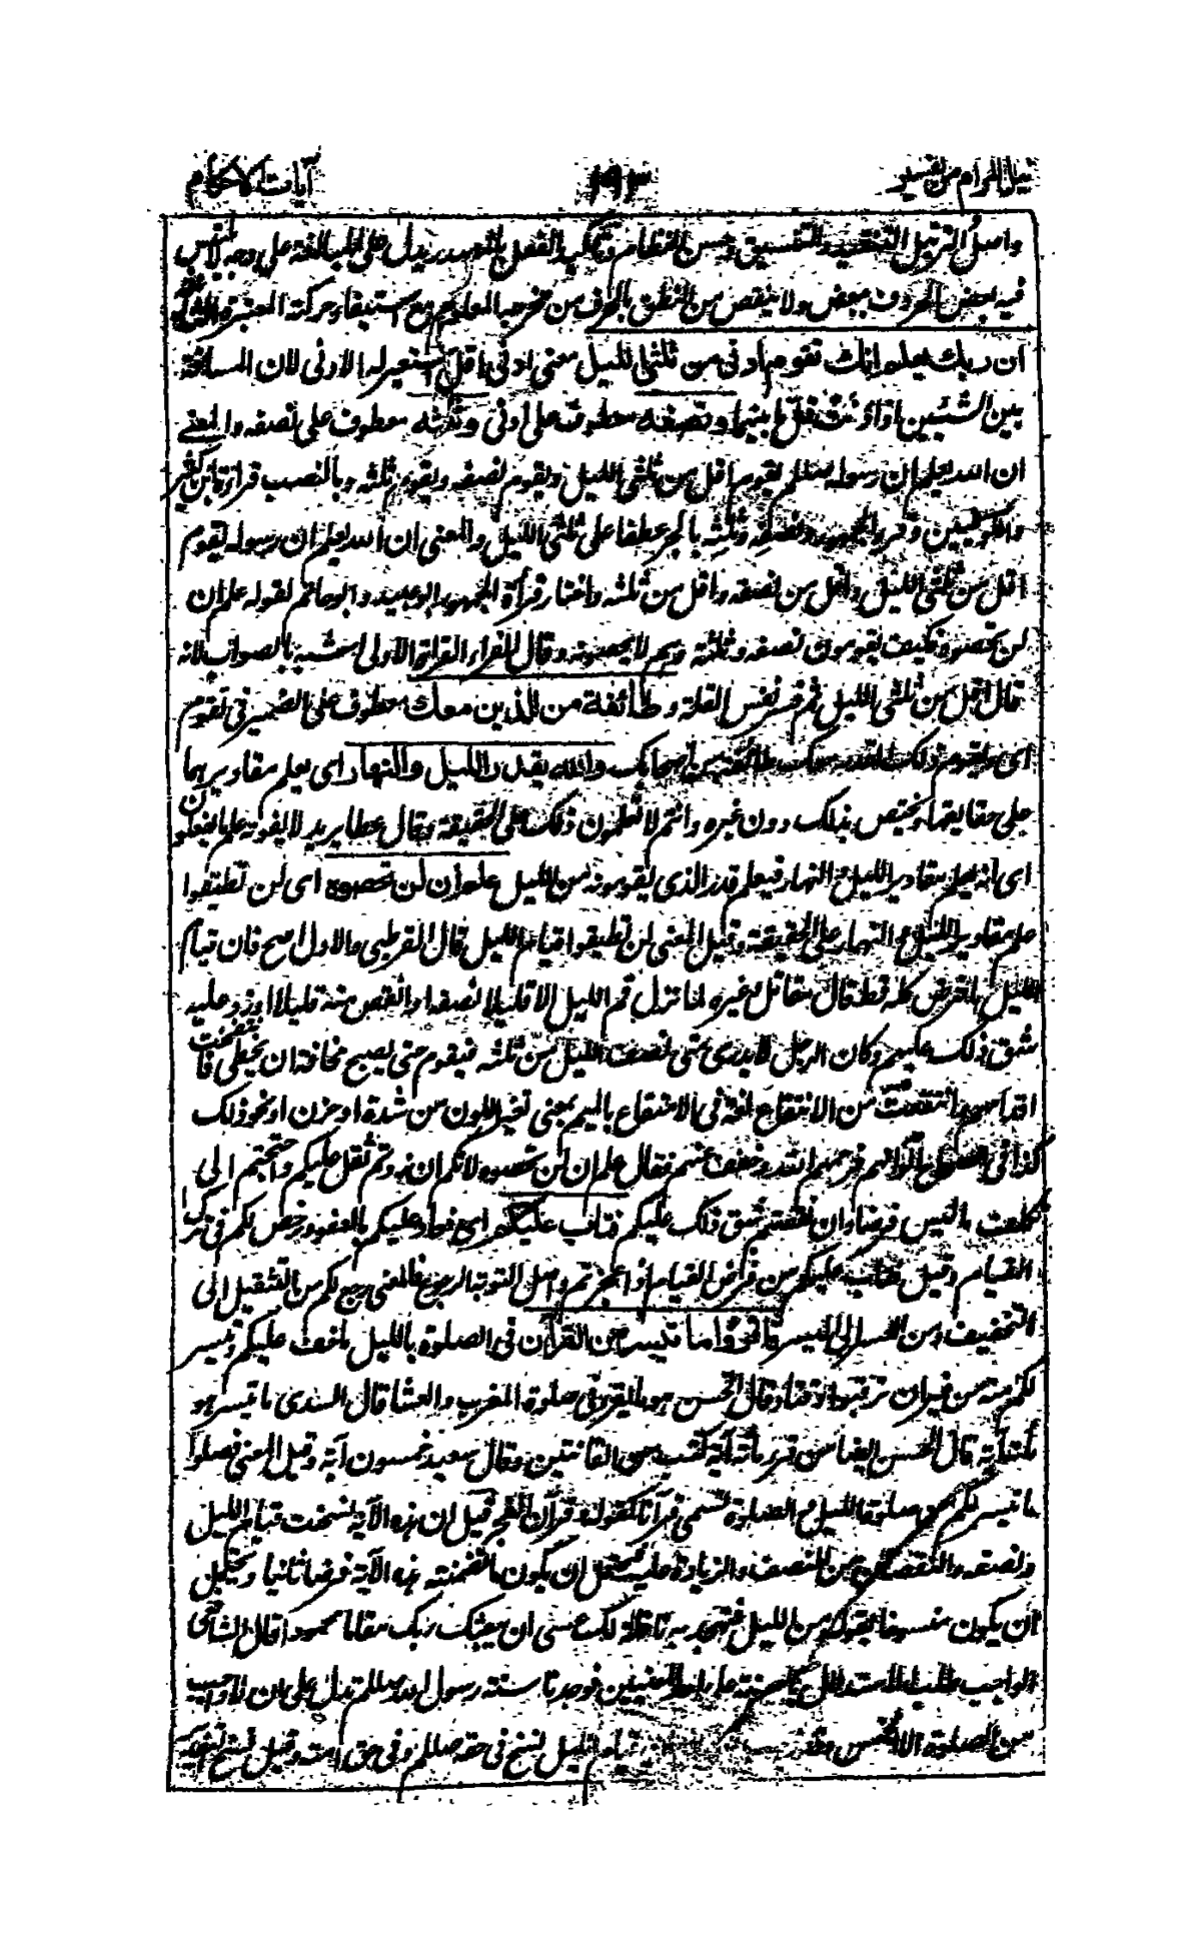 نيل المرام من تفسير ١٩٣ آيات الاحكام
واصل الترتيل التنضيد والتنسيق وحسن النظام وتاكيد الفعل بالمصدر يدل على المبالغة على وجه لا يلتبس
فيه بعض الحروف ببعض ولا ينقص من النطق بالحرف من مخرجه المعلوم مع استيفاء حركته المعتبرة
ان ربك يعلم انك تقوم ادنى من ثلثي الليل معنى ادنى اقل استعير له الادنى لان المسافة
بين الشيئين اذا دنت قل ما بينهما ونصفه معطوف على ادنى وثلثه معطوف على نصفه والمعنى
ان الله يعلم ان رسوله صللم يقوم اقل من ثلثي الليل ويقوم نصفه ويقوم ثلثه وبالنصب قراءة ابن كثير
والكوفيين وقرء الجمهور ونصفِه وثلثِه بالجر عطفا على ثلثي الليل والمعنى ان الله يعلم ان رسوله يقوم
اقل من ثلثي الليل واقل من نصفه واقل من ثلثه واختار قرأة الجمهور ابو عبيد وابو حاتم لقوله علم ان
لن تحصوه فكيف يقومون نصفه وثلثه وهم لا يحصونه وقال الفراء القراءة الاولى اشبه بالصواب لانه
قال اقل من ثلثي الليل ثم فسر نفس القلة وطائفة من الذين معك معطوف على الضمير في تقوم
اى وتقوم ذلك القدر معك طائفة من اصحابك والله يقدر الليل والنهار اى يعلم مقاديرهما
على حقايقهما ويختص بذلك دون غيره وانتم لا تعلمون ذلك على الحقيقة وقال عطا يريد لا يفوته علم ما يفعلون
اى انه يعلم مقادير الليل والنهار فيعلم قدر الذى يقومونه من الليل علم ان لن تحصوه اى لن تطيقوا
علم مقادير الليل والنهار على الحقيقة وقيل المعنى لن تطيقوا قيام الليل قال القرطبى والاول اصح فان قيام
الليل ما فرض كله قط قال مقاتل وغيره لما نزل قم الليل الا قليلا نصفه او انقص منه قليلا او زد عليه
شق ذلك عليهم وكان الرجل لا يدرى متى نصف الليل من ثلثه فيقوم حتى يصبح مخافة ان يخطى فانتفخت
اقدامهم وانتقعت من الانتقاع لغة فى الامتقاع بالميم بمعنى تغير اللون من شدة او حزن او نحو ذلك
كذا فى الوانهم فرحمهم الله وخفف عنهم فقال علم ان لن تحصوه لانكم ان زدتم ثقل عليكم واحتجتم الى
تكلف ما ليس فرضا وان نقصتم شق ذلك عليكم فتاب عليكم اى فعاد عليكم بالعفو ورخص لكم فى ترك
القيام وقيل فتاب عليكم من فرض القيام اذا عجزتم واصل التوبة الرجوع فالمعنى رجع لكم من التثقيل الى
التخفيف ومن العسر الى اليسر فاقرؤا ما تيسر من القرآن فى الصلوة بالليل ما خف عليكم وتيسر
لكم منه من غير ان ترقبوا وقتا وقال الحسن هو ما يقرأ فى صلوة المغرب والعشا قال السدى ما تيسر هو
مأتا آية قال الحسن ايضا من قرء مائة آية كتب من القانتين وقال سعيد خمسون آية وقيل المعنى فصلوا
ما تيسر لكم من صلوة الليل والصلوة تسمى قرآنا كقوله وقرآن الفجر قيل ان هذه الآية نسخت قيام الليل
ونصفه والنقصان من النصف والزيادة عليه فيحتمل ان يكون ما تضمنته هذه الآية فرضا ثانيا ويحتمل
ان يكون منسوخا بقوله ومن الليل فتهجد به نافلة لك عسى ان يبعثك ربك مقاما محمودا قال الشافعى
الواجب طلب الاستدلال بالسنة على احد المعنيين فوجدنا سنة رسول الله صللم تدل على ان لا واجب
من الصلوة الا الخمس وقد قيام الليل نسخ فى حقه صللم وفى حق امته وقيل نسخ